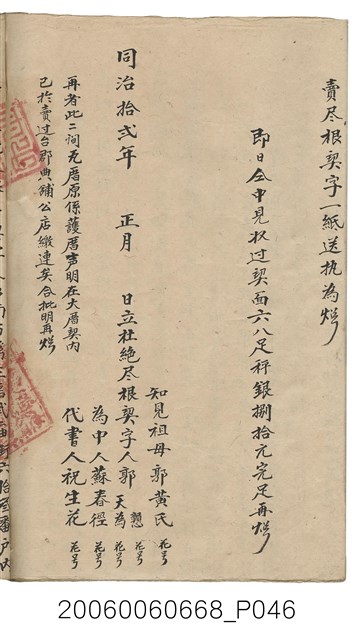 賣尽根契字一紙送执為炤
即日仝中見收过契面六八足秤銀捌拾元完足再炤
同治拾弍年　正月　日立杜絶尽根契字人郭天為 花号
知見祖母郭黃氏 花号
為中人蘇春徑 花号
代書人祝生花 花号
再者此二间瓦厝原係護厝声明在大厝契内
已於賣过台郡典舖公店繳連矣合批明再炤
20060060668_P046